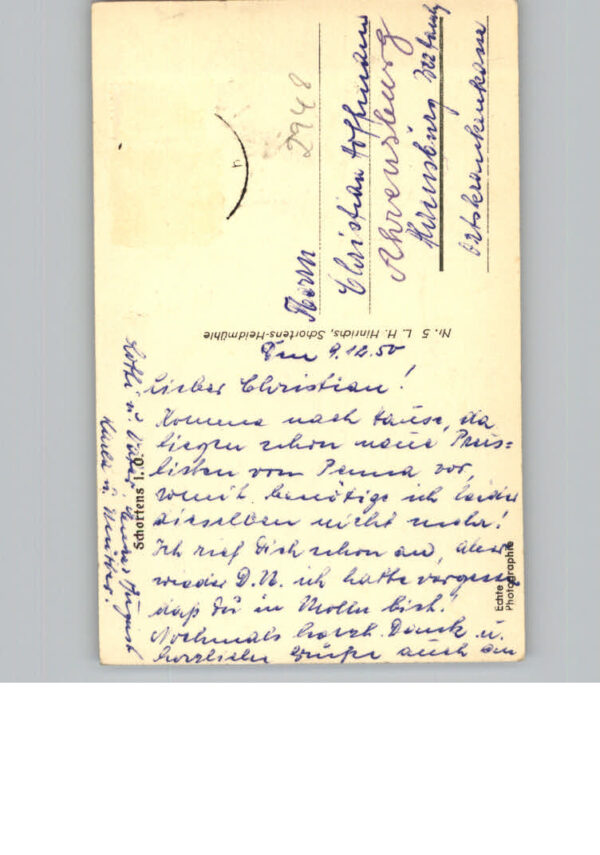 Den 9.12.50
Lieber Christian!
Komme nach Hause, da
liegen schon neue Preis=
listen vom Penna vor,
somit benötige ich leider
dieselben nicht mehr!
Ich rief Dich schon an, aber
wieder D.N. ich hatte vergessen
daß Du in Mölln bist!
Nochmals herzl. Dank u.
herzliche Grüße auch an
u. Vater, August
u.
Herrn
Christian Hoffmann
Ahrensburg
Ortskrankenkasse
2948
Nr. 5 L. H. Hinrichs, Schortens-Heidmühle
Schortens i. O.
Echte
Photographie